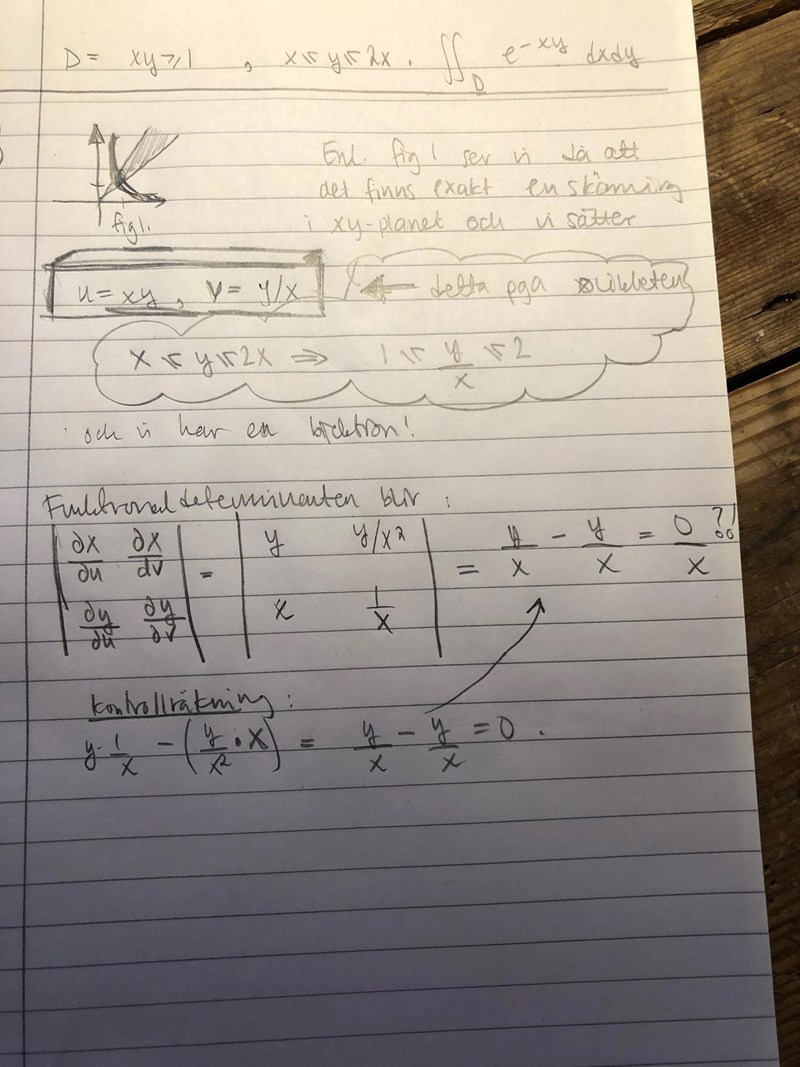 D = xy ≥ 1 , x ≤ y ≤ 2x . ∬_D e^{-xy} dxdy
Enl. fig 1 ser vi då att
det finns exakt en skärning
fig 1.
i xy-planet och vi sätter
u = xy , v = y/x ← detta pga
x ≤ y ≤ 2x ⇒ 1 ≤ y/x ≤ 2
och vi har en bijektion!
Funktionaldeterminanten blir :
| ∂x/∂u ∂x/∂v | = | y y/x² | = y/x - y/x = 0/x ?!
| ∂y/∂u ∂y/∂v | | x 1/x |
kontrollräkning :
y · 1/x - (y/x² · x) = y/x - y/x = 0 .